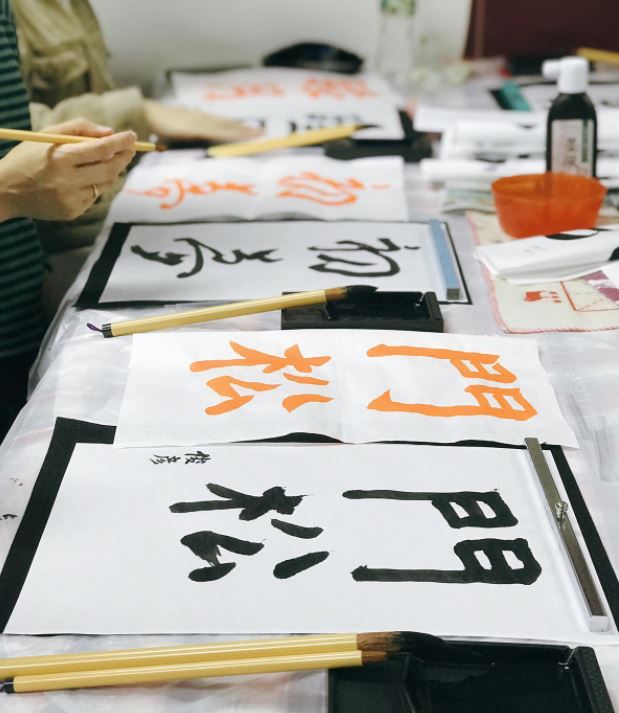 初春
初春
門松
門松
俊彦